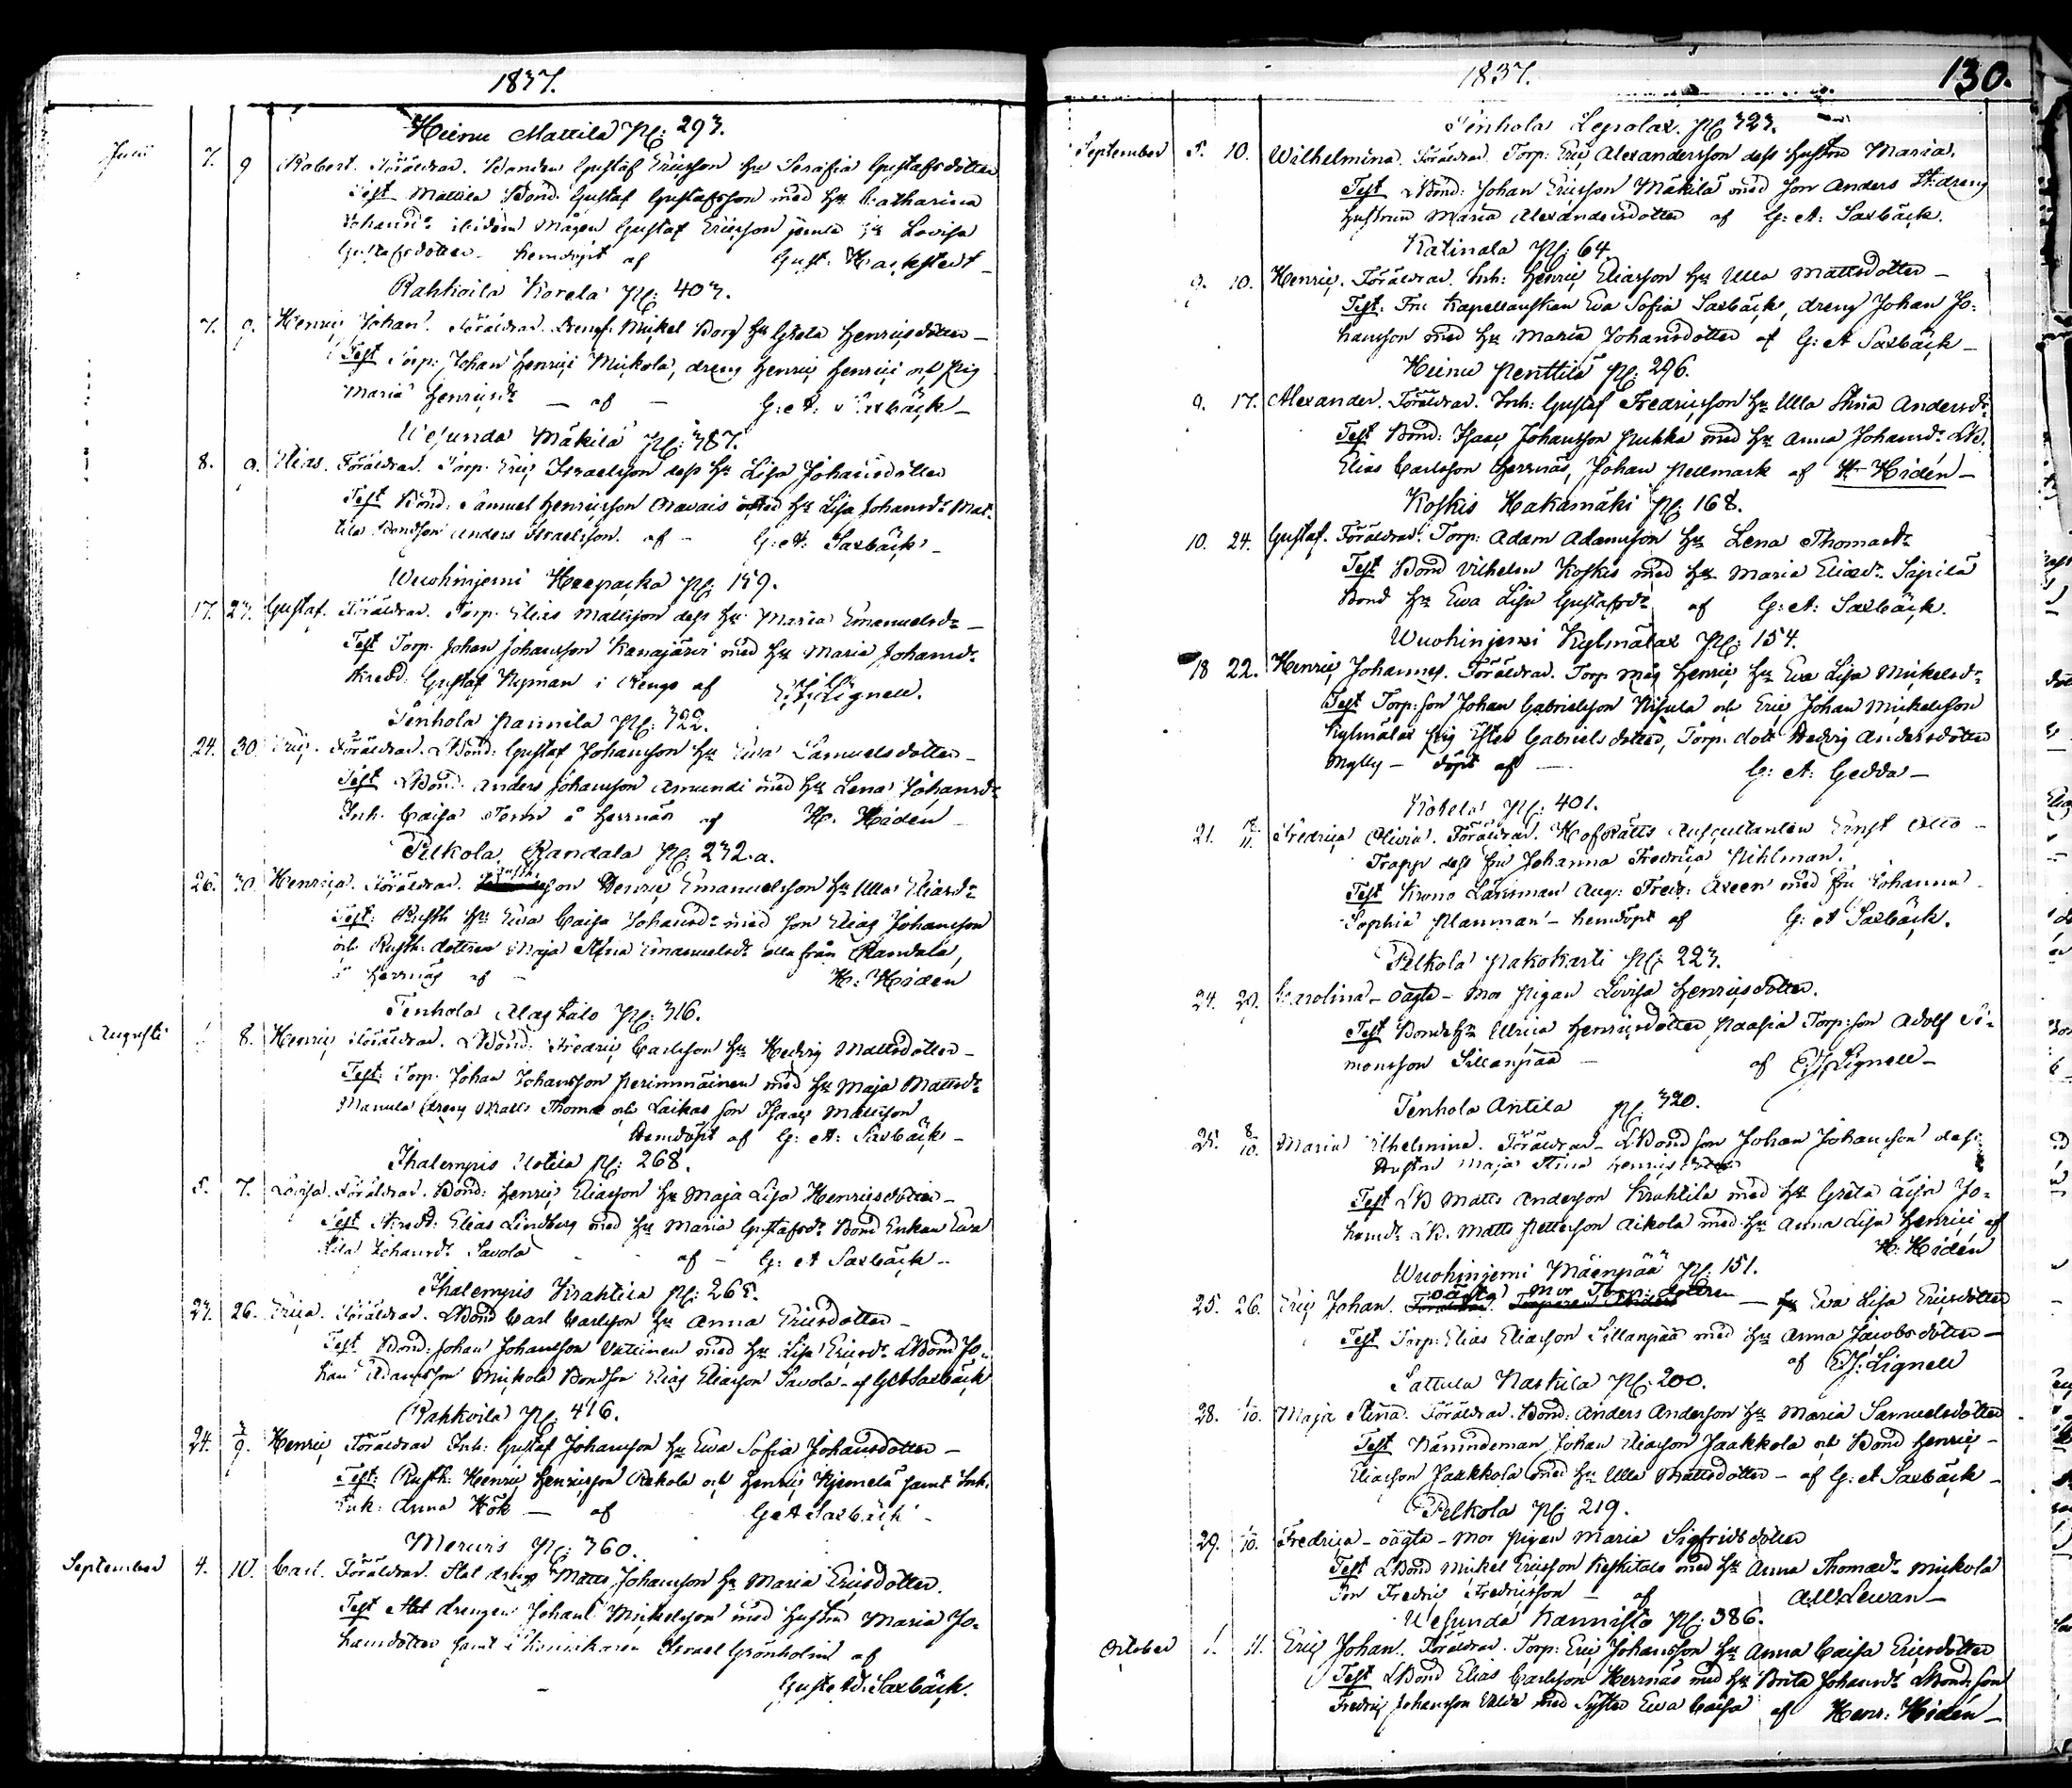 1837.
Heinu Mattila Pg: 293.
Julii 7. 9 Robert. Föräldrar. Bonden Gustaf Ericsson Hu Serafia Gustafsdotter
Test Mattila Bond. Gustaf Gustafsson med Hu Catharina
Johansdr Mågen Gustaf Ericsson jemte Hu Lovisa
Gustafsdotter. hemdöpt af Gust: Hackstedt
Rahkoila Korela Pg: 403.
7. 9. Henric Johan. Föräldrar. Dreng. Mickel Borg Hu Greta Henricsdotter
Test Torp: Johan Henrici Mickola, dreng Henric Henrici och Pig
Maria Henricsdr — af — G: A: Saxbäck
Wesunda Mäkilä Pg: 387.
8. 9. Elias. Föräldrar. Torp. Eric Israelsson dess Hu Lisa Johansdotter
Test Bond: Samuel Henricsson Anavais med Hu Lisa Johansdr Mat-
tila Bondson Anders Israelsson. af — G: A: Saxbäck
Wuohinjemi Pg: 159.
17. 23. Gustaf. Föräldrar. Torp. Elias Mattsson dess Hu Maria Emanuelsdr
Test Torp. Johan Johansson Kanajärvi med Hu Maria Johansdr
Skredd: Gustaf Nyman i Rengo af E. J. Lignell.
Tenhola Pannila Pg: 322.
24. 30. Eric. Föräldrar. LBond: Gustaf Johansson Hu Ewa Samuelsdotter
Test LBond. Anders Johansson Amundi med Hu Lena Johansdr
Inh. Caisa å Herrnäs af H. Hidén
Pelkola Randala Pg: 232.a.
26. 30. Henrica. Föräldrar. Henric Emanuelsson Hu Ulla Eliasdr
Test: Rusth Hu Ewa Caisa Johansdr med son Elias Johansson
och Rusth: dottren Maja Stina Emanuelsdr alla från Randala,
Herrnäs af H: Hidén
Tenhola Alastalo Pg: 316.
Augusti 1. 8. Henric Föräldrar. LBond: Fredric Carlsson Hu Hedvig Mattsdotter
Test: Torp. Johan Johansson Perimmäinen med Hu Maja Mattsdr
Manula dreng Matts Thomæ och Laikas son Isaac Mattsson
Hemdöpt af G: A: Saxbäck
Ihalempis Uotila Pg: 268.
5. 7. Lovisa. Föräldrar. Bond: Henric Eliasson Hu Maja Lisa Henricsdotter
Test Skredd: Elias Lindberg med Hu Maria Gustafsdr Bond Enkan Ewa
Lisa Johansdr Savola af — G: A Saxbäck
Ihalempis Krahtila Pg: 265.
23. 26. Erica. Föräldrar. LBond Carl Carlsson Hu Anna Ericsdotter
Test Bond: Johan Johansson Uutinen med Hu Lisa Ericsdr LBond Jo-
han Adamsson Mickola Bondson Elias Eliasson Savola af G A Saxbäck
Rahkoila Pg: 416.
24. 3/9. Henric Föräldrar Inh: Gustaf Johansson Hu Ewa Sofia Johansdotter
Test: Rusth: Henric Henricsson Rekola och Henric samt Inh.
Enk: Anna Hök — af G A Saxbäck
Mervis Pg: 360.
September 4. 10. Carl. Föräldrar. Stal dreng Matts Johansson Hu Maria Ericsdotter.
Test Stal drengen Johan Mickelsson med Hustru Maria Jo-
hansdotter samt Israel Grönholm af
Gust: Ad: Saxbäck.
1837. 130.
Tenhola Lepolax. Pg 323.
September 5. 10. Wilhelmina. Föräldrar. Torp: Eric Alexandersson dess hustru Maria.
Test LBond: Johan Ericsson Mäkilä med son Anders St: dreng
hustrun Maria Alexandersdotter af G: A: Saxbäck.
Katinala Pg: 64.
9. 10. Henric. Föräldrar. Inh: Henric Eliasson Hu Ulla Mattsdotter
Test: Fru Kapellanskan Ewa Sofia Saxbäck, dreng Johan Jo-
hansson med Hu Maria Johansdotter af G: A Saxbäck
Heinu Penttilä Pg: 296.
9. 17. Alexander. Föräldrar. Inh: Gustaf Fredricsson Hu Ulla Stina Andersdr
Test Bond: Isaac Johansson Pukka med Hu Anna Johansdr LB.
Elias Carlsson Herrnäs, Johan Pellmark af H. Hidén
Koskis Hakamäki Pg: 168.
10. 24. Gustaf. Föräldrar. Torp: Adam Adamsson Hu Lena Thomasdr
Test Bond Vilhelm Koskis med Hu Maria Eliasdr Sipilä
Bond Hu Ewa Lisa Gustafsdr af G: A: Saxbäck.
Wuohinjemi Kylmälax Pg: 154.
18 22. Henric Johannes. Föräldrar. Torp måg Henric Hu Ewa Lisa Mickelsdr
Test Torp: son Johan Gabrielsson Nisula och Eric Johan Mickelsson
Kylmälax pig Ester Gabrielsdotter, Torp. dott Hedvig Andersdotter
Mylly — döpt af — G: A: Gedda
Kobela Pg: 401.
21. Fredrica Olivia. Föräldrar. HofRätts Auscultanten Ernst Otto
Trapp dess fru Johanna Fredrica Kihlman.
Test Krono Länsman Aug: Fredr: Axeen med fru Johanna
Sophia Planman — hemdöpt af G: A Saxbäck.
Pelkola Pakokarti Pg: 223.
24. 29. Carolina — oägta — Mor Pigan Lovisa Henricsdotter.
Test Bonde Hu Ulrica Henricsdotter Paasia Torp: son Adolf Si-
monsson Sillanpää — af E J Lignell
Tenhola Antila Pg: 320.
25. 8/10. Maria Wilhelmina. Föräldrar LBondson Johan Johansson dess
Hustru Maja Stina Henricsdotter
Test LB Matts Andersson Krahtila med Hu Greta Caisa Jo-
hansdr LB. Matts Pettersson Aikola med Hu Anna Lisa Henrici af
H: Hidén
Wuohinjemi Mäenpää Pg: 151.
25. 26. Eric Johan. oägta Mor Torp: dottren — Ewa Lisa Ericsdotter
Test Torp: Elias Eliasson Sillanpää med Hu Anna Jacobsdotter
af E. J: Lignell
Sattula Naskila Pg. 200.
28. 1/10. Maja Stina. Föräldrar. Bond: Anders Andersson Hu Maria Samuelsdotter
Test Nämndeman Johan Eliasson Jaakkola och Bond Henric
Eliasson Jaakkola med Hu Ulla Mattsdotter — af G: A Saxbäck
Pelkola Pg: 219.
29. 1/10. Fredrica — oägta — Mor Pigan Maria Sigfridsdotter
Test LBond Mickel Ericsson Keskitalo med Hu Anna Thomasdr Mickola
Son Fredric Fredricsson — af A W Lewan
Wesunda Kannisto Pg: 386.
October 1. 11. Eric Johan. Föräldrar. Torp: Eric Johansson Hu Anna Caisa Ericsdotter
Test LBond Elias Carlsson Herrnäs med Hu Brita Johansdr LBondson
Fredric Johansson med Syster Ewa Caisa af Henr: Hidén